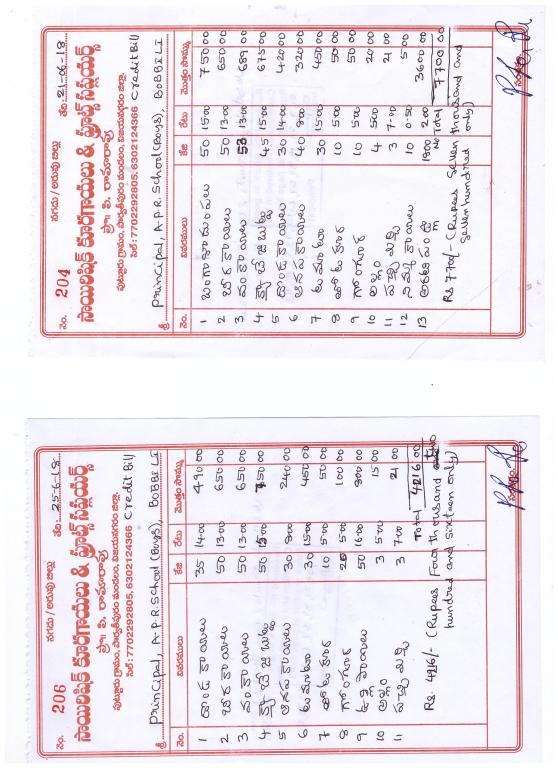 నగదు / అరువు బిల్లు
నెం. 204 తేది: 21-06-18
సాయిలిషిక్ కూరగాయలు & ఫ్రూట్స్ సప్లయర్స్
ప్రొ॥ పి. రామారావు
పుట్టూరు గ్రామం, పార్వతీపురం మండలం, విజయనగరం జిల్లా.
సెల్ : 7702292805, 6302124366 Credit Bill
శ్రీ Principal, A.P.R. School (Boys), BOBBILI
నెం. వివరములు కేజి రేటు మొత్తం సొమ్ము
1 బంగాళాదుంపలు 50 15.00 750 00
2 బీరకాయలు 50 13.00 650 00
3 వంకాయలు 53 13.00 689 00
4 క్యాబేజి బుట్టలు 45 15.00 675 00
5 దొండకాయలు 30 14.00 420 00
6 ఆనపకాయలు 40 8.00 320 00
7 టమాటా 30 15.00 450 00
8 తోటకూర 10 5.00 50 00
9 గోంగూర 10 5.00 50 00
10 అల్లం 4 5.00 20 00
11 పచ్చిమిర్చి 3 7.00 21 00
12 నిమ్మకాయలు 10 0.50 5 00
13 అరటి పండ్లు 1800 2.00 3600 00
No Total 7700 00
Rs 7700/- (Rupees Seven thousand and
Seven hundred only)
సంతకం
నగదు / అరువు బిల్లు
నెం. 206 తేది: 25-6-18
సాయిలిషిక్ కూరగాయలు & ఫ్రూట్స్ సప్లయర్స్
ప్రొ॥ పి. రామారావు
పుట్టూరు గ్రామం, పార్వతీపురం మండలం, విజయనగరం జిల్లా.
సెల్ : 7702292805, 6302124366 Credit Bill
శ్రీ Principal, A.P.R. School (Boys), BOBBILI
నెం. వివరములు కేజి రేటు మొత్తం సొమ్ము
1 దొండకాయలు 35 14.00 490 00
2 బీరకాయలు 50 13.00 650 00
3 వంకాయలు 50 13.00 650 00
4 క్యాబేజి బుట్టలు 50 15.00 750 00
5 ఆనపకాయలు 30 8.00 240 00
6 టమాటా 30 15.00 450 00
7 తోటకూర 10 5.00 50 00
8 గోంగూర 20 5.00 100 00
9 ఉల్లిపాయలు 50 16.00 800 00
10 అల్లం 3 5.00 15 00
11 పచ్చిమిర్చి 3 7.00 21 00
Total 4216 00
Rs. 4216/- (Rupees Four thousand two
hundred and sixteen only)
సంతకం